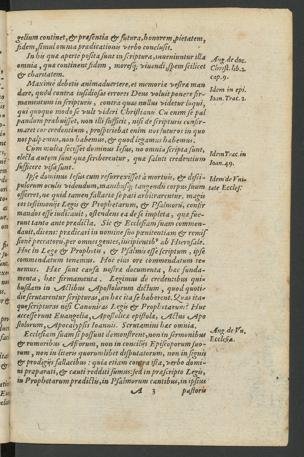 gelium continet, & præsentia & futura, honorem, pietatem,
fidem, simul omnia prædicationis verbo conclusit.
In his quæ aperte posita sunt in scriptura, inueniuntur illa
omnia, quæ continent fidem, moresq; viuendi, spem scilicet
& charitatem.
Aug. de doc.
Christ. lib. 2.
cap. 9.
Maxime debetis animaduertere, et memoriæ vestræ man
dare, quòd contra insidiosos errores Deus voluit ponere fir-
mamentum in scripturis, contra quas nullus videtur loqui,
qui quoquo modo se vult videri Christianum. Cu enim se pal
pandum præbuisset, non illi suffecit, nisi de scripturis confir-
maret cor credentium, prospiciebat enim nos futuros: in quo
nos palpemus, non habemus, & quod legamus habemus.
Idem in epi.
Ioan. Trac. 2.
Cum multa fecisset dominus Iesus, no omnia scripta sunt,
electa autem sunt quæ scriberentur, quæ saluti credentium
sufficere visa sunt.
Idem Trac. in
Ioan. 49.
Ipse dominus Iesus cum resurrexisset à mortuis, & disci-
pulorum oculis videndum, manibusq; tangendū corpus suum
offerret, ne quid tamen fallacia se pati arbitrarentur, magis
eos testimonijs Legis & Prophetarum, & Psalmorū, confir-
mandos esse indicauit, ostendens ea de se impleta, quæ fue-
runt tanto ante prædicta. Sic & Ecclesiam suam commen-
dauit, dicens: prædicari in nomine suo pœnitentiam & remis
sionē peccatorū, per omnes gentes, incipientib⁹ ab Hierusalē.
Hoc in Lege & Prophetis, & Psalmis esse scriptum, ipse
commendatum tenemus. Hoc eius ore commendatum te
nemus. Hæc sunt causæ nostræ documenta, hæc funda-
menta, hæc firmamenta. Legimus de credentibus qui-
busdam in Actibus Apostolorum dictum, quod quoti-
die scrutarentur scripturas, an hæc ita se haberent. Quas itaque
scripturas nisi Canonicas Legis & Prophetarum? Huc
accesserunt Euangelia, Apostolicæ epistolæ, Actus Apo
stolorum, Apocalypsis Ioannis. Scrutamini hæc omnia.
Idem de Vni-
tate Ecclesf.
Ecclesiam suam si possunt demonstrent, non in sermonibus
& rumoribus Afrorum, non in concilijs Episcoporum suo-
rum, non in literis quorumlibet disputatorum, non in signis
& prodigijs fallacibus: quia etiam contra ista, verbo domi-
ni præparati, & cauti redditi sumus: sed in præscripto Legis,
in Prophetarum prædictis, in Psalmorum cantibus, in ipsius
Aug. de Vn.
Ecclesiæ.
A 3
pastoris